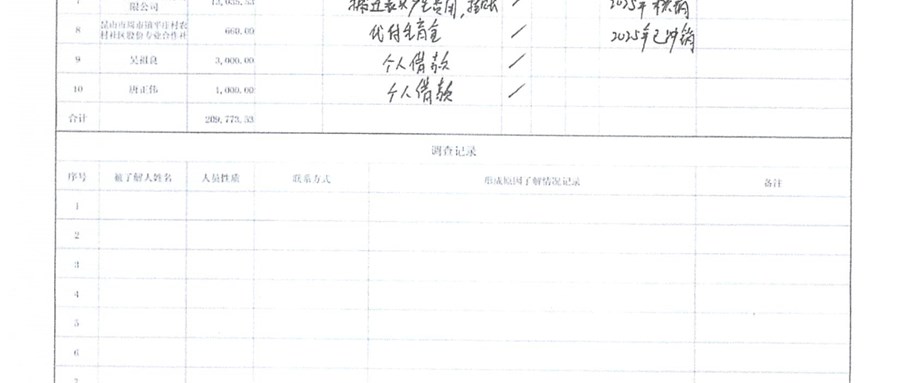 7 限公司 13,035.53 2025年核销
8 昆山市周市镇平庄村农村社区股份专业合作社 660.00 代付生育金 / 2025年已冲销
9 吴祖良 3,000.00 个人借款 /
10 唐正伟 1,000.00 个人借款 /
合计 209,773.53
调查记录
序号 被了解人姓名 人员性质 联系方式 形成原因了解情况记录 备注
1
2
3
4
5
6
7